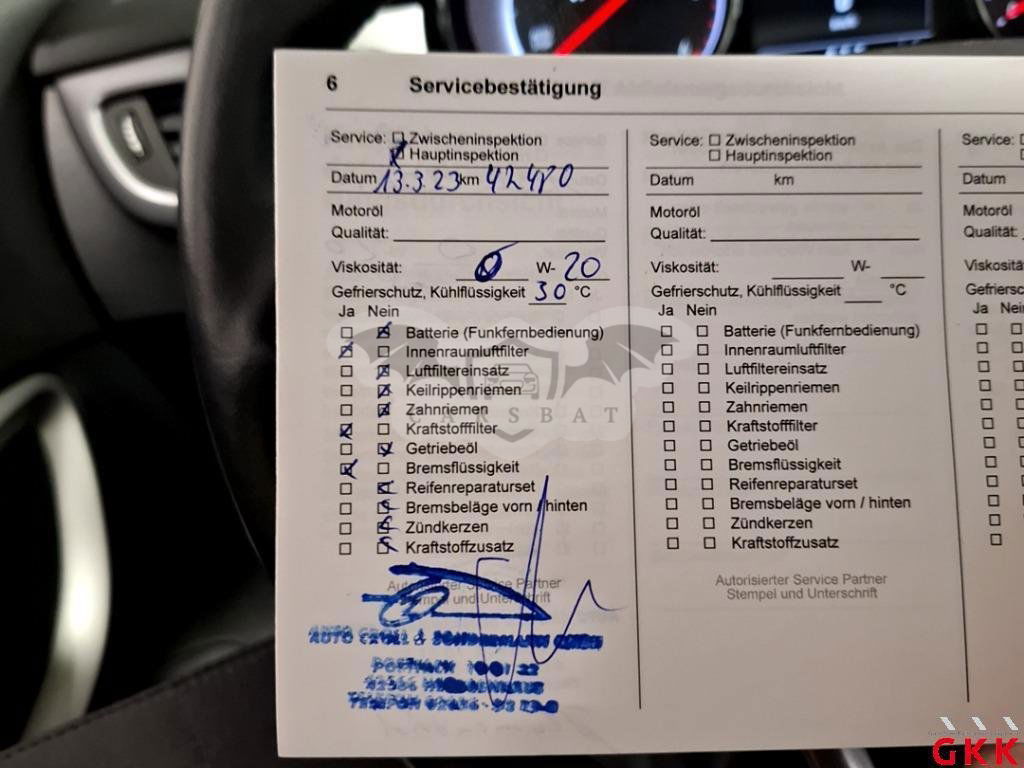 6 Servicebestätigung
Service: ☐ Zwischeninspektion
☒ Hauptinspektion
Datum 13.3.23 km 42470
Motoröl
Qualität:
Viskosität: 0 W- 20
Gefrierschutz, Kühlflüssigkeit 30 °C
Ja Nein
☐ ☒ Batterie (Funkfernbedienung)
☒ ☐ Innenraumluftfilter
☐ ☒ Luftfiltereinsatz
☐ ☒ Keilrippenriemen
☐ ☒ Zahnriemen
☒ ☐ Kraftstofffilter
☐ ☒ Getriebeöl
☒ ☐ Bremsflüssigkeit
☐ ☒ Reifenreparaturset
☐ ☒ Bremsbeläge vorn / hinten
☐ ☒ Zündkerzen
☐ ☒ Kraftstoffzusatz
Autorisierter Service Partner
Stempel und Unterschrift
AUTO &
TELEFON
Service: ☐ Zwischeninspektion
☐ Hauptinspektion
Datum km
Motoröl
Qualität:
Viskosität: W-
Gefrierschutz, Kühlflüssigkeit °C
Ja Nein
☐ ☐ Batterie (Funkfernbedienung)
☐ ☐ Innenraumluftfilter
☐ ☐ Luftfiltereinsatz
☐ ☐ Keilrippenriemen
☐ ☐ Zahnriemen
☐ ☐ Kraftstofffilter
☐ ☐ Getriebeöl
☐ ☐ Bremsflüssigkeit
☐ ☐ Reifenreparaturset
☐ ☐ Bremsbeläge vorn / hinten
☐ ☐ Zündkerzen
☐ ☐ Kraftstoffzusatz
Autorisierter Service Partner
Stempel und Unterschrift
Service: ☐
☐
Datum
Motoröl
Qualität:
Viskositä
Gefriersc
Ja Nein
CARSBAT
GKK